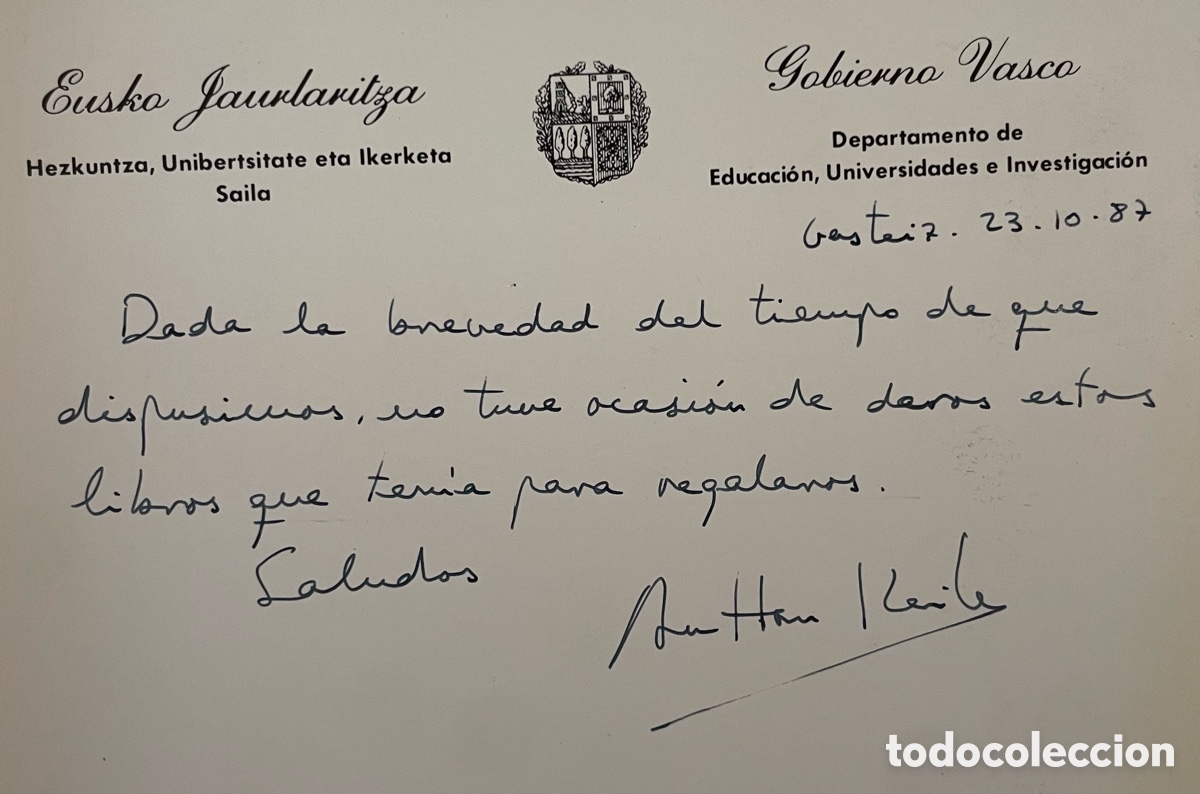 Eusko Jaurlaritza
Hezkuntza, Unibertsitate eta Ikerketa
Saila
Gobierno Vasco
Departamento de
Educación, Universidades e Investigación
Gasteiz. 23.10.87
Dada la brevedad del tiempo de que
dispusimos, no tuve ocasión de daros estos
libros que tenía para regalaros.
Saludos
todocoleccion